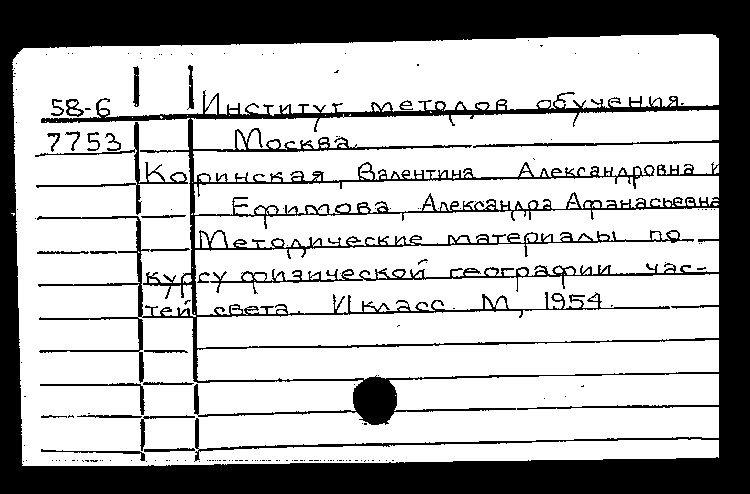 58-6 Институт методов обучения.
7753 Москва.
Коринская, Валентина Александровна и
Ефимова, Александра Афанасьевна
Методические материалы по
курсу физической географии час-
тей света. VI класс. М., 1954.